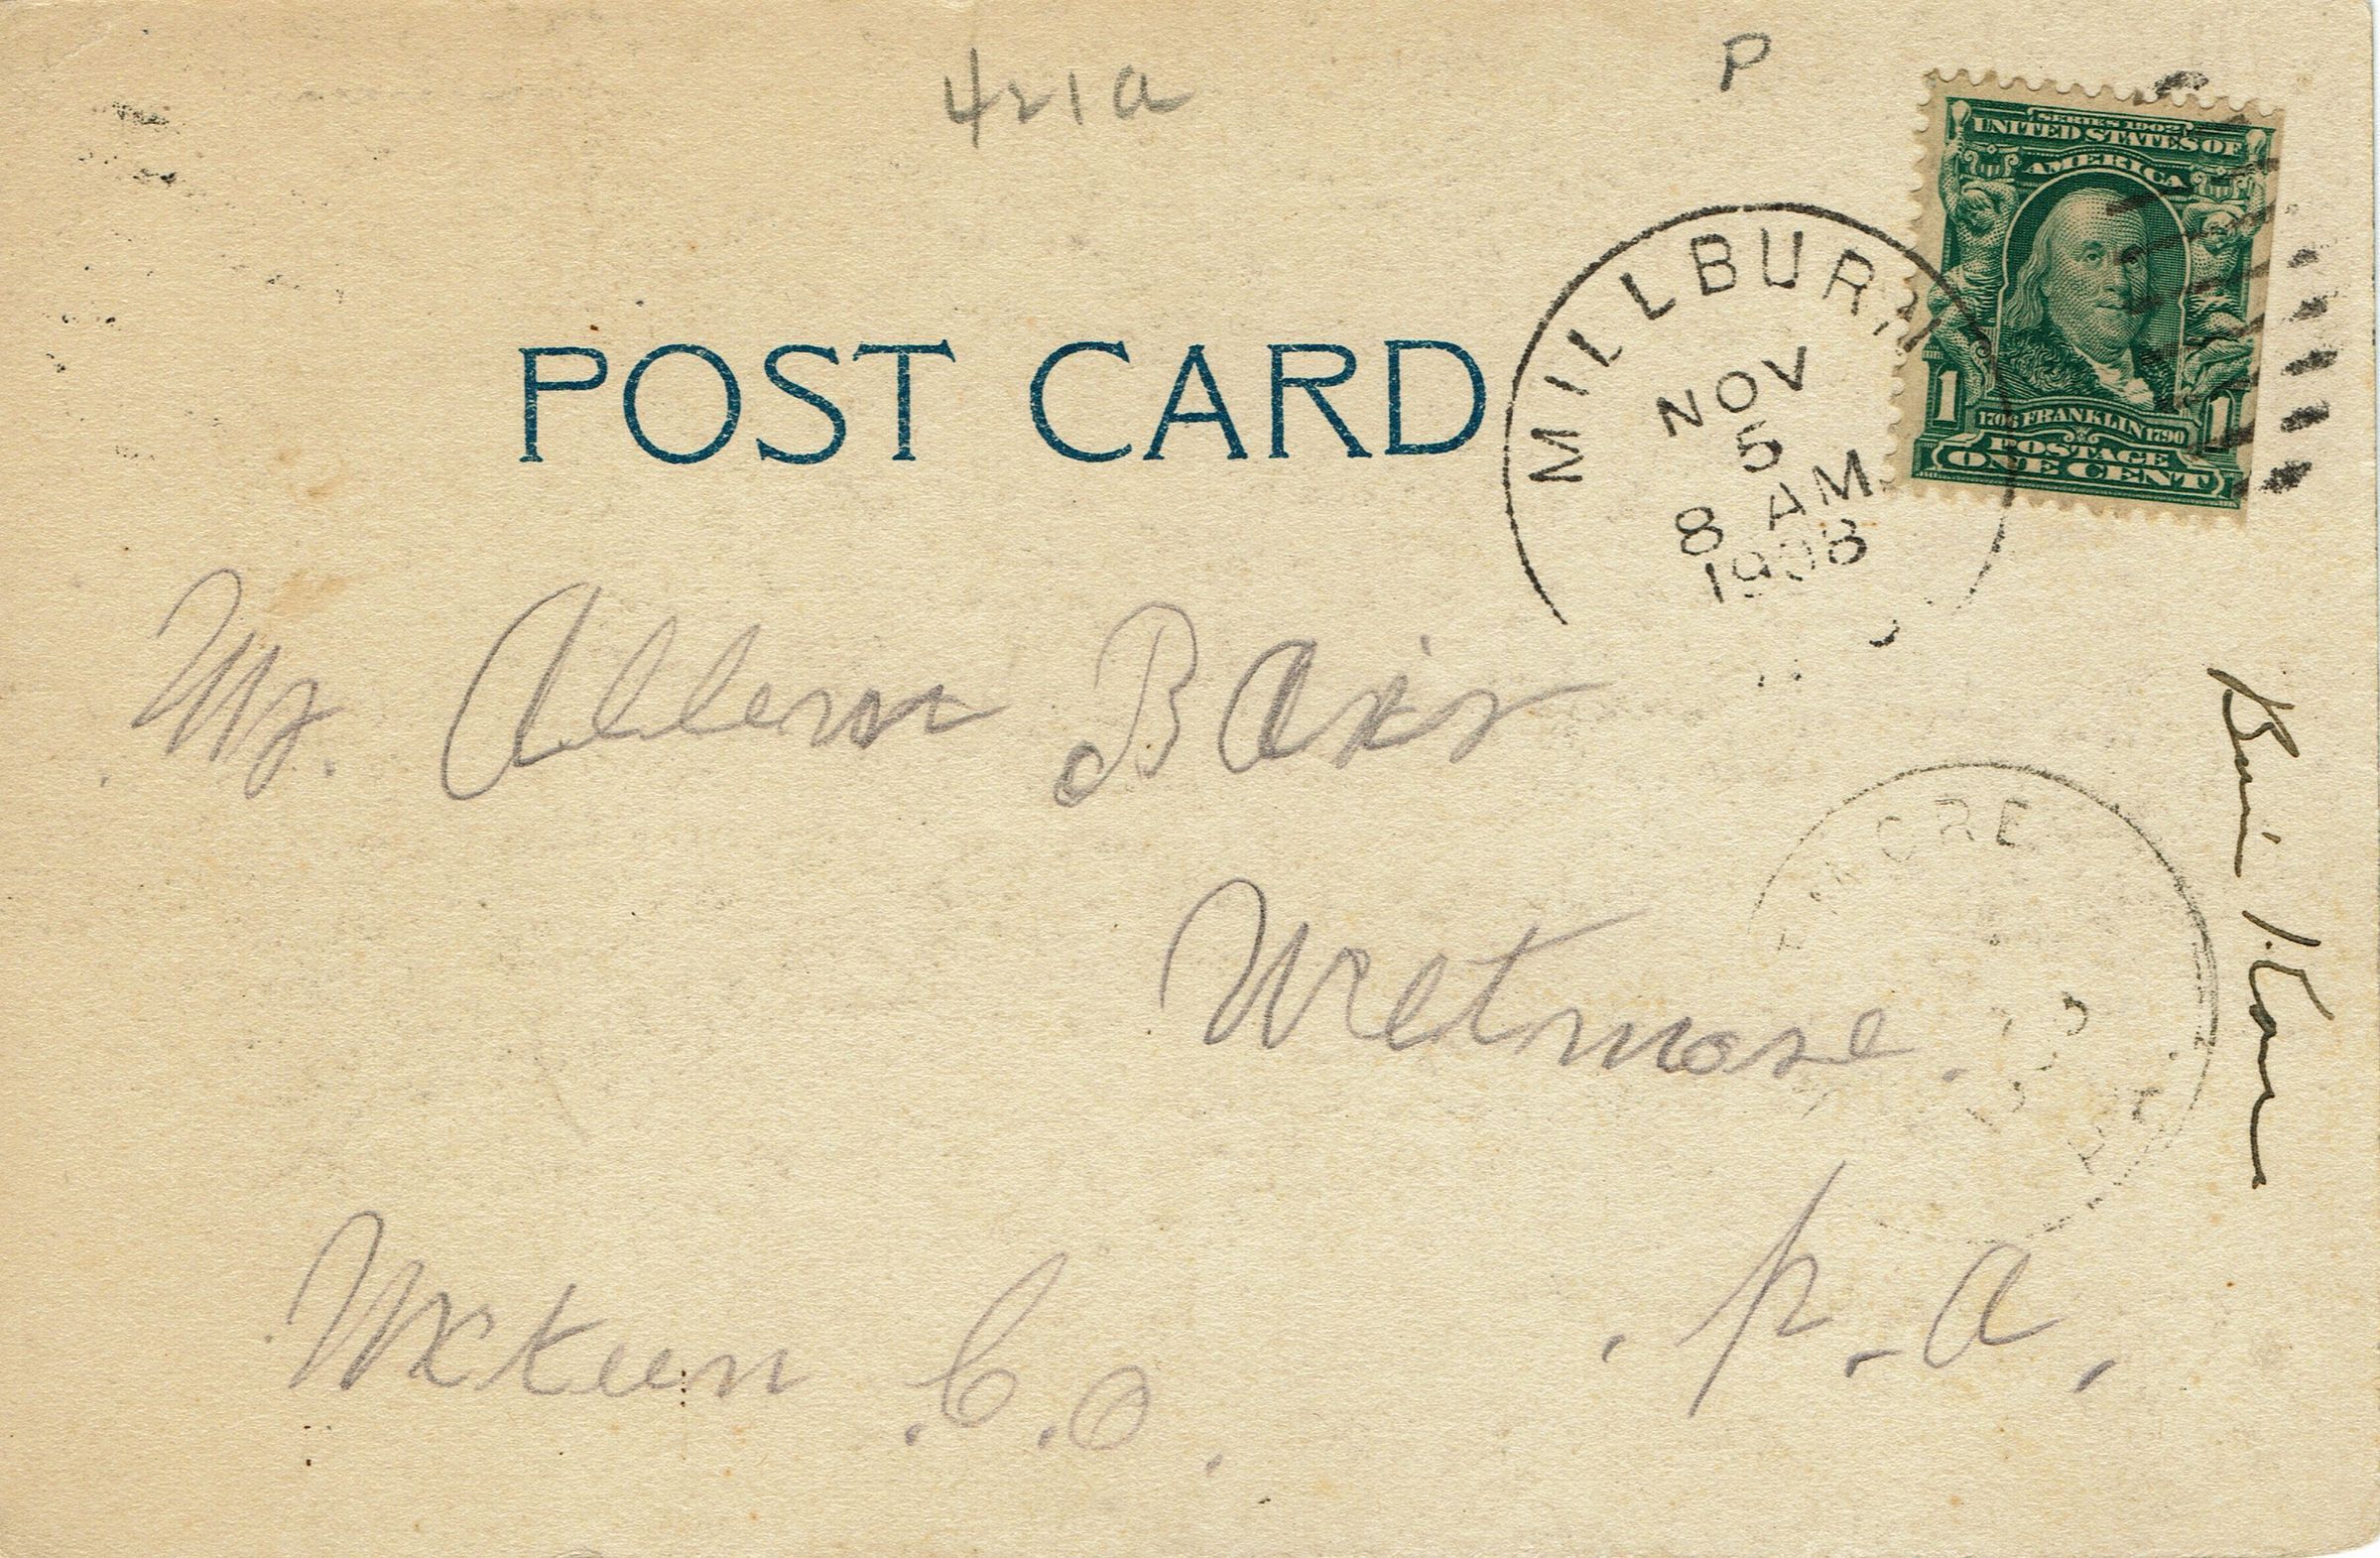 421a
P
SERIES 1902
UNITED STATES OF
AMERICA
1 1
1706 FRANKLIN 1790
POSTAGE
ONE CENT
MILLBURN
NOV
5
8 AM
1908
POST CARD
Mr.
Wetmore.
McKeen C.O.
P.a.
TMORE
PA.